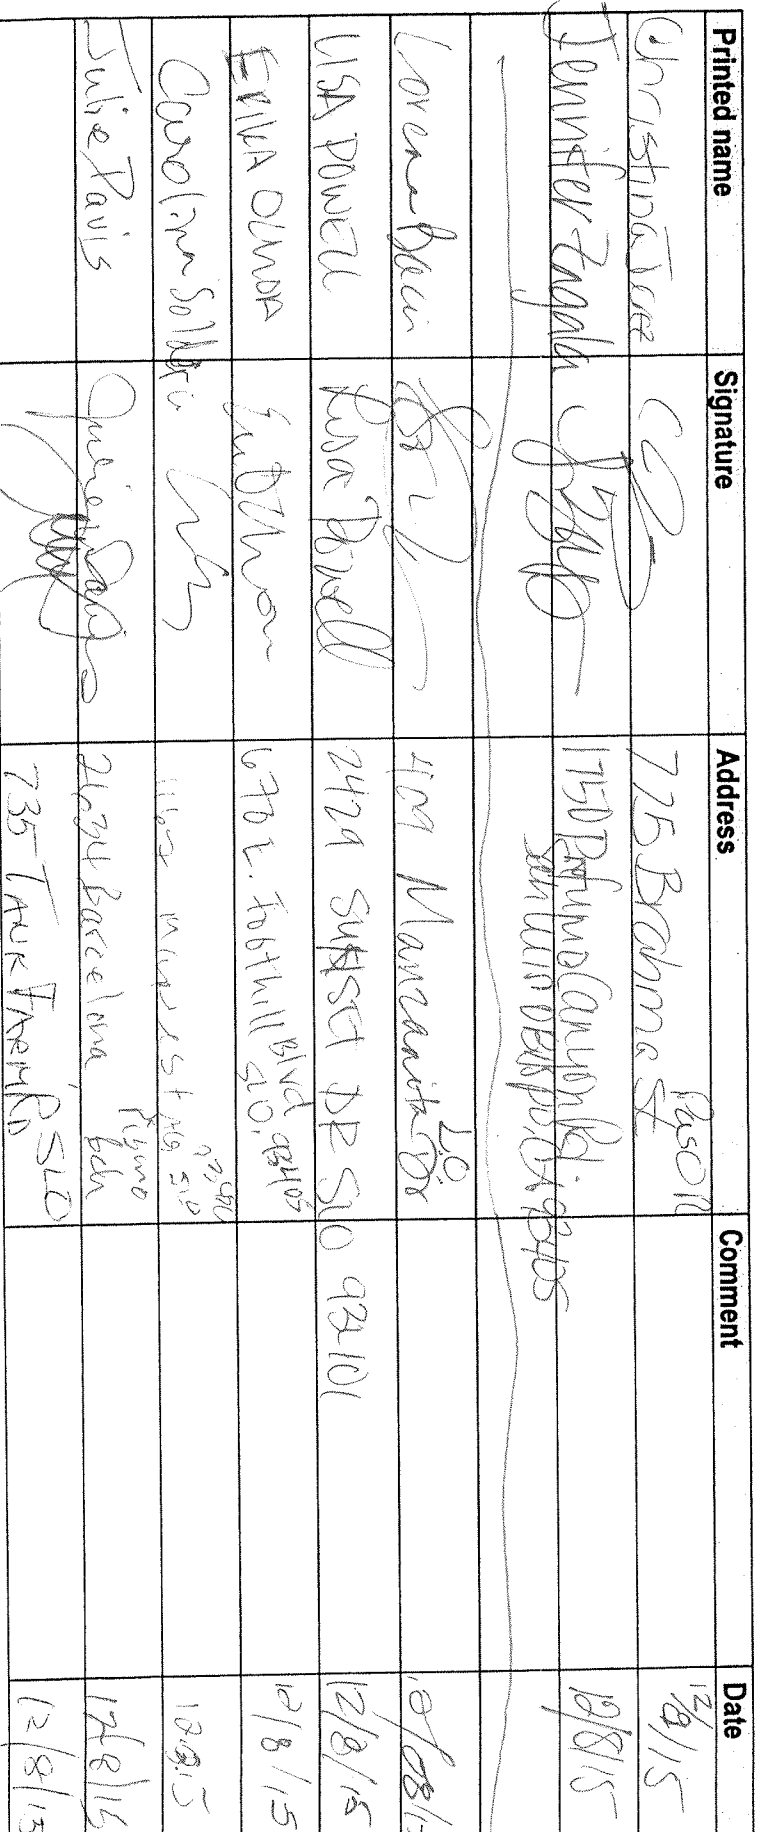 Printed name Signature Address Comment Date
Christina Jerez 725 Brahma St Paso R 12/8/15
Jennifer Zagala 1750 Prefumo Canyon Rd.
San Luis Obispo, CA 93405 12/8/15
Lorena 409 Manzanita Dr L.O
LISA POWELL Lisa Powell 2429 SUNSET DR SLO 93101 12/8/15
ERIKA OCHOA 670 Foothill Blvd SLO, 93405 12/8/15
Carolina
Julie Davis Julie Davis 2634 Barcelona Pizmo bch 12/8/15
735 TANK FARM RD SLO 12/8/15